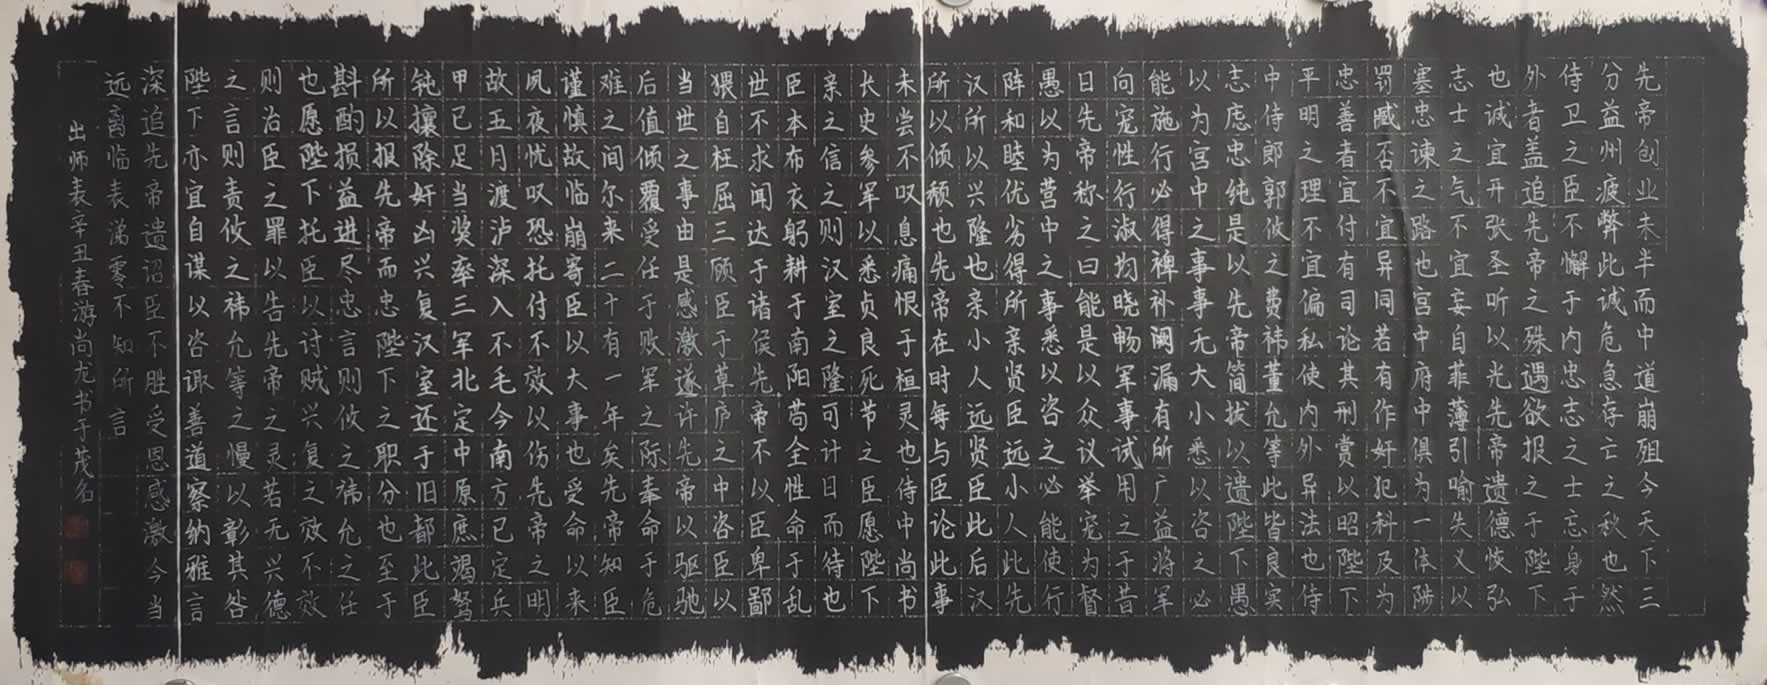 先帝创业未半而中道崩殂今天下三
分益州疲弊此诚危急存亡之秋也然
侍卫之臣不懈于内忠志之士忘身于
外者盖追先帝之殊遇欲报之于陛下
也诚宜开张圣听以光先帝遗德恢弘
志士之气不宜妄自菲薄引喻失义以
塞忠谏之路也宫中府中俱为一体陟
罚臧否不宜异同若有作奸犯科及为
忠善者宜付有司论其刑赏以昭陛下
平明之理不宜偏私使内外异法也侍
中侍郎郭攸之费祎董允等此皆良实
志虑忠纯是以先帝简拔以遗陛下愚
以为宫中之事事无大小悉以咨之必
能施行必得裨补阙漏有所广益将军
向宠性行淑均晓畅军事试用之于昔
日先帝称之曰能是以众议举宠为督
愚以为营中之事悉以咨之必能使行
阵和睦优劣得所亲贤臣远小人此先
汉所以兴隆也亲小人远贤臣此后汉
所以倾颓也先帝在时每与臣论此事
未尝不叹息痛恨于桓灵也侍中尚书
长史参军以悉贞良死节之臣愿陛下
亲之信之则汉室之隆可计日而待也
臣本布衣躬耕于南阳苟全性命于乱
世不求闻达于诸侯先帝不以臣卑鄙
猥自枉屈三顾臣于草庐之中咨臣以
当世之事由是感激遂许先帝以驱驰
后值倾覆受任于败军之际奉命于危
难之间尔来二十有一年矣先帝知臣
谨慎故临崩寄臣以大事也受命以来
夙夜忧叹恐托付不效以伤先帝之明
故五月渡泸深入不毛今南方已定兵
甲已足当奖率三军北定中原庶竭驽
钝攘除奸凶兴复汉室还于旧都此臣
所以报先帝而忠陛下之职分也至于
斟酌损益进尽忠言则攸之祎允之任
也愿陛下托臣以讨贼兴复之效不效
则治臣之罪以告先帝之灵若无兴德
之言则责攸之祎允等之慢以彰其咎
陛下亦宜自谋以咨诹善道察纳雅言
深追先帝遗诏臣不胜受恩感激今当
远离临表涕零不知所言
出师表辛丑春游尚龙书于茂名